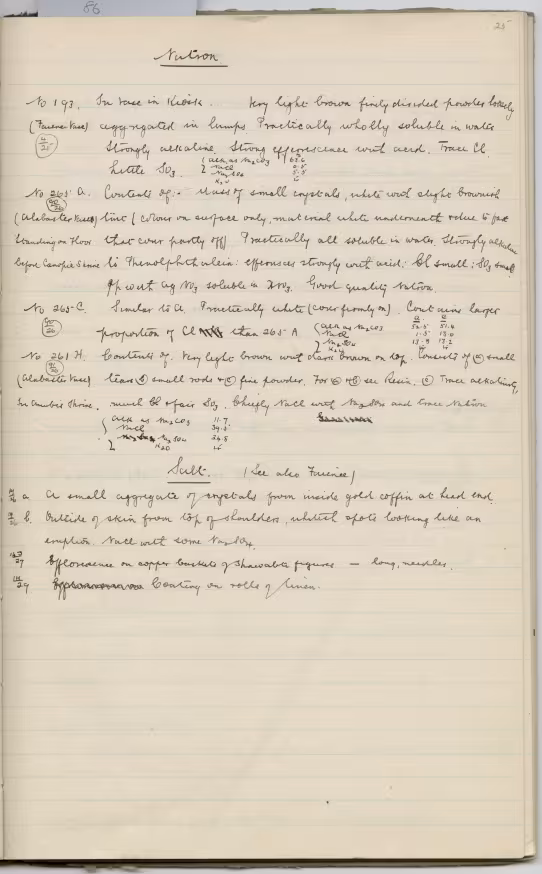 86
25
Natron
No 193. In vase in Kiosk. Very light brown finely divided powder loosely
(Faience Vase) aggregated in lumps. Practically wholly soluble in water
Strongly alkaline. Strong effervescence with acid. Trace Cl.
Little SO3. Alk as Na2CO3
NaCl
Na2SO4
H2O
No 265 A. Contents of. Mass of small crystals, white with slight brownish
(Alabaster Vase) tint (colour on surface only, material white underneath
Standing on Floor that cover partly off) Practically all soluble in water. Strongly alkaline
before Canopic to Phenolphthalein: effervesces strongly with acid: Cl small: SO3 small
Ppt with Ag NO3 soluble in HNO3. Good quality Natron.
No 265 C. Similar to A. Practically white (cover firmly on). Contains larger
proportion of Cl than 265 A (Alk as Na2CO3
NaCl
Na2SO4
H2O
No 261 H. Contents of. Very light brown with dark brown on top. Consists of (a) small
(Alabaster Vase) tears (b) small rods & (c) fine powder. For (a) & (b) see Resin. (c) Trace alkalinity,
In Anubis Shrine. much Cl & fair SO3. Chiefly NaCl with Na2SO4 and trace Natron
Alk as Na2CO3 11.7
NaCl
Na2SO4
H2O
Salt. (See also Faience)
a A small aggregate of crystals from inside gold coffin at head end.
b. Outside of skin from top of shoulders, whitish spots looking like an
eruption. NaCl with some Na2SO4.
27 Efflorescence on copper baskets of Shawabti figures — long, needles.
29 Coating on rolls of linen.